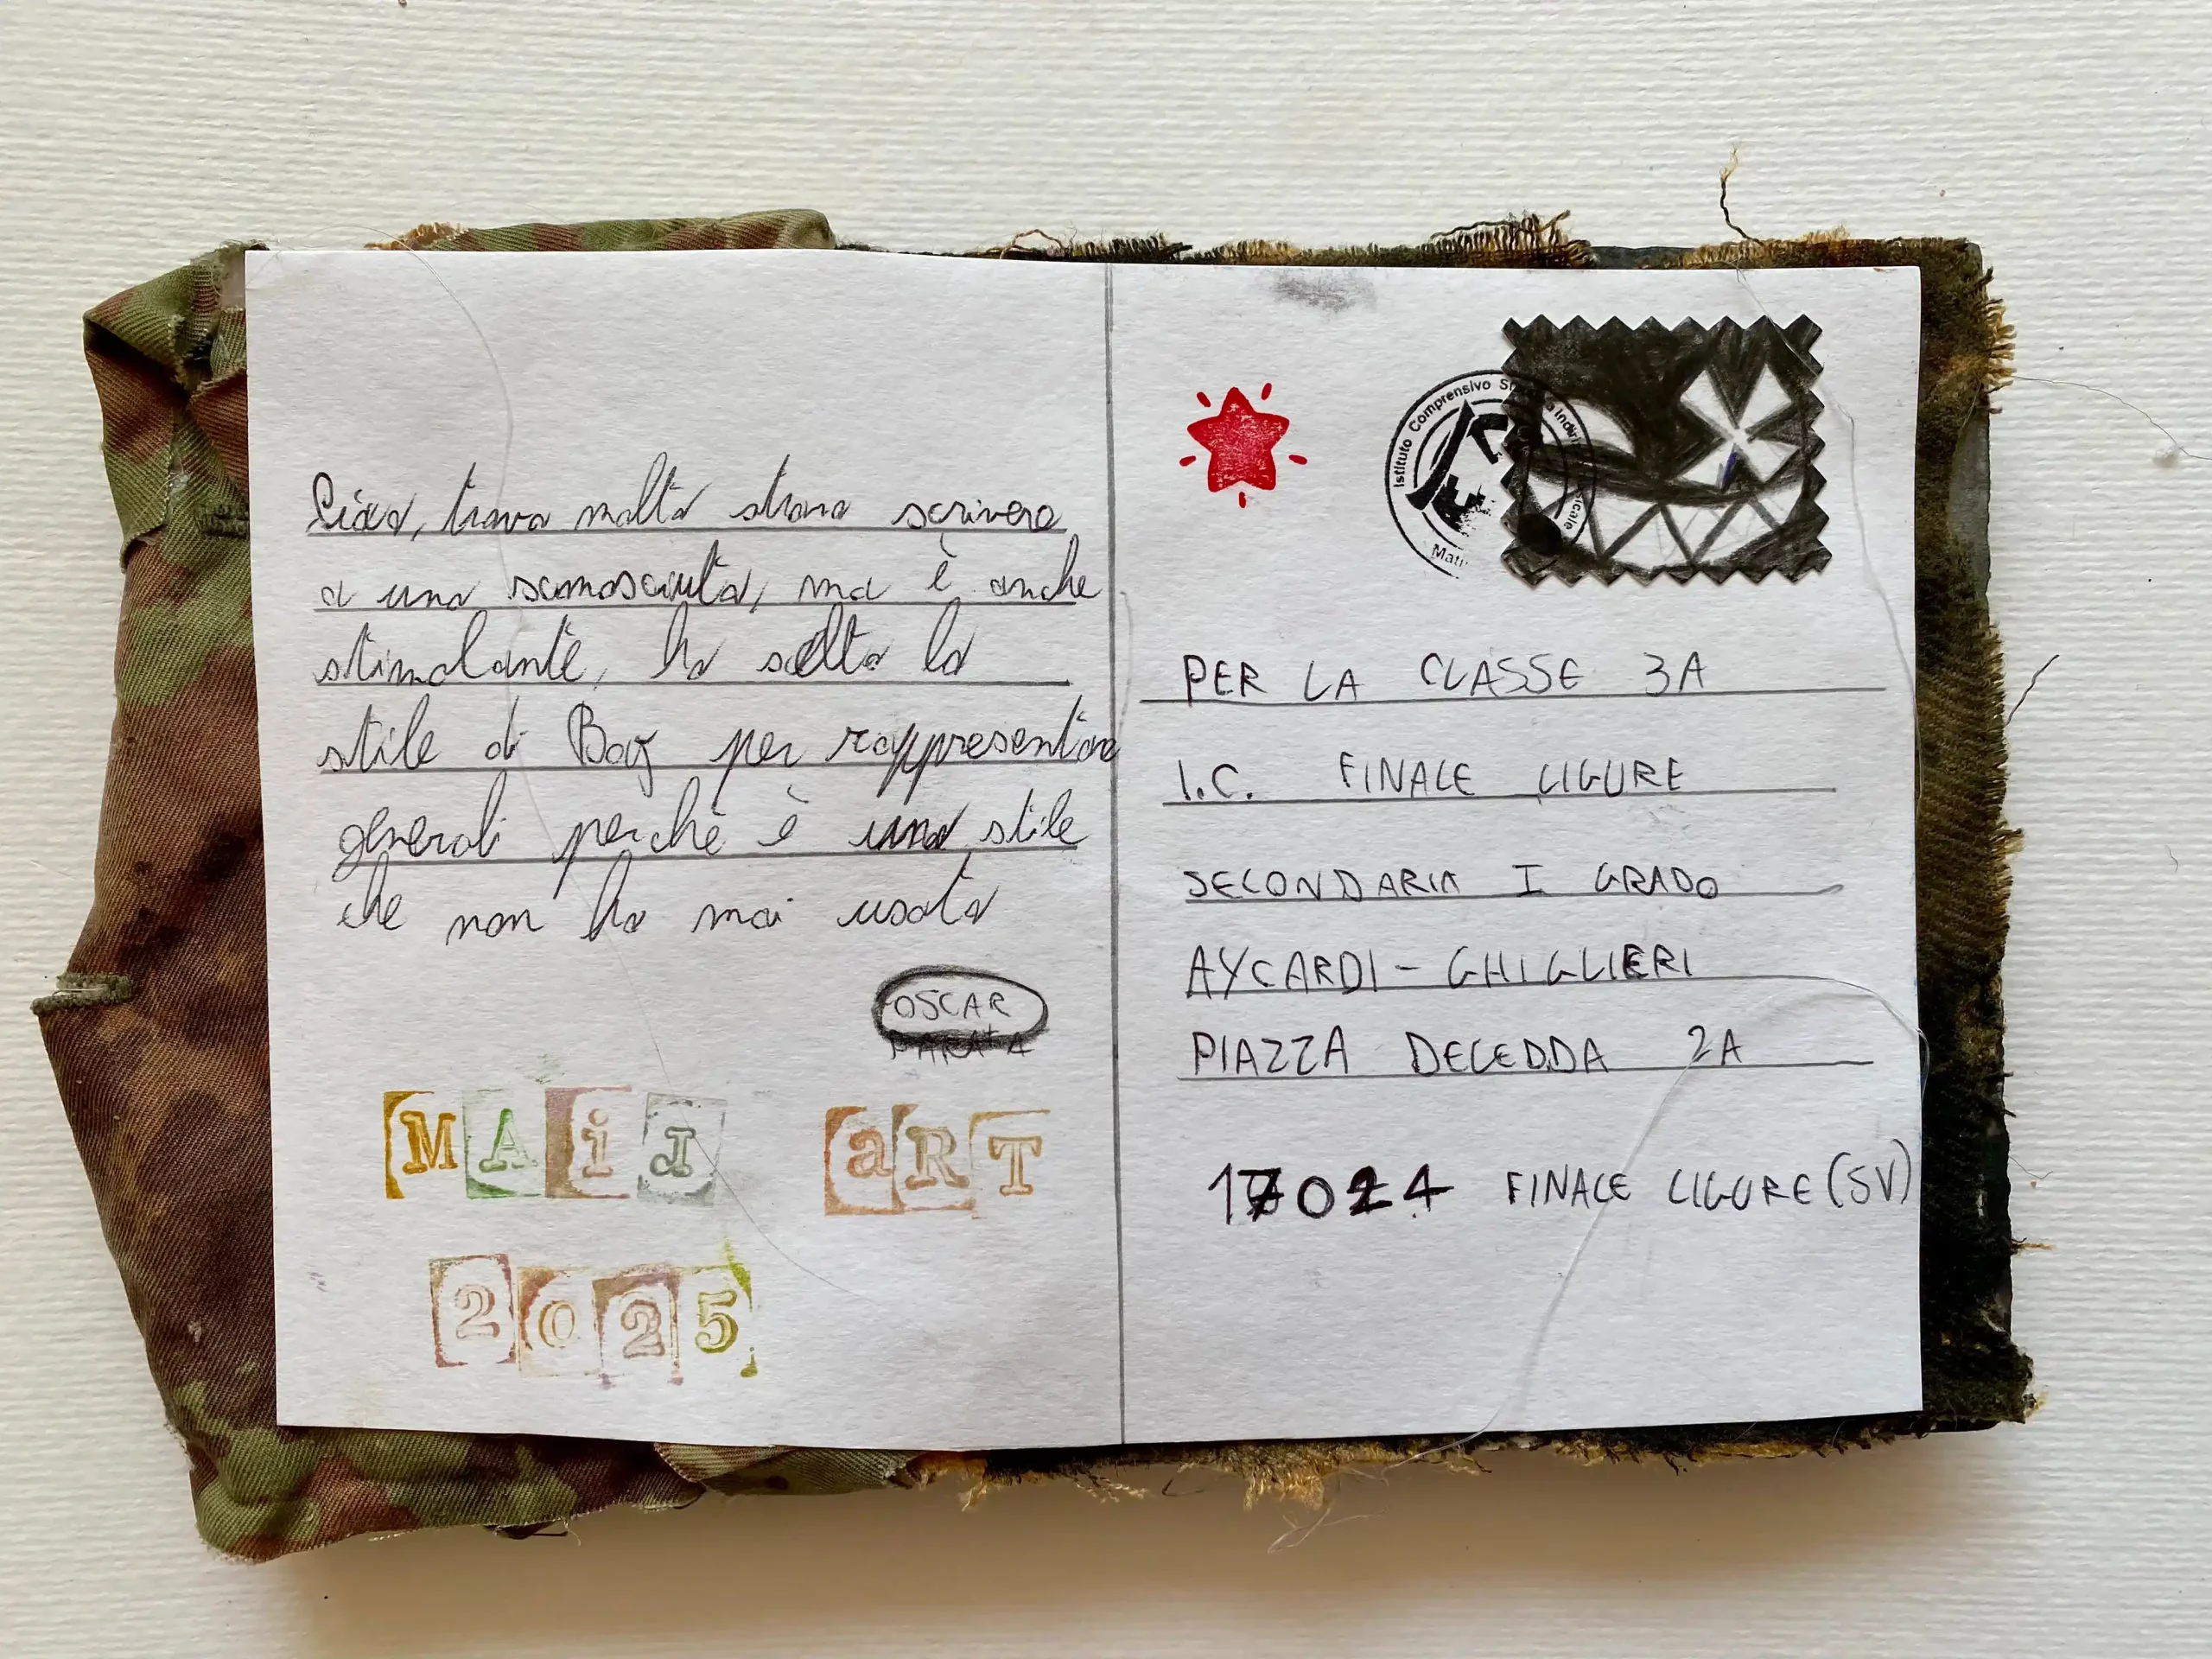 Ciao, trovo molto strano scrivere
a uno sconosciuto, ma è anche
stimolante, ho scelto lo
stile di Baj per rappresentare
generali perchè è uno stile
che non ho mai usato
OSCAR
MAiJ aRT
2025
Istituto Comprensivo
PER LA CLASSE 3A
I.C. FINALE LIGURE
SECONDARIA I GRADO
AYCARDI - GHIGLIERI
PIAZZA DELEDDA 2A
17024 FINALE LIGURE (SV)